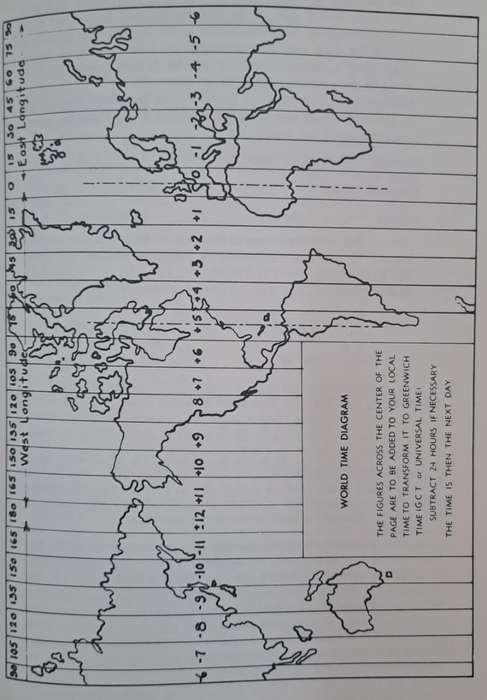 90 105 120 135 150 165 180 165 150 135 120 105 90 75 60 45 30 15 0 15 30 45 60 75 90
West Longitude East Longitude
-6 -7 -8 -9 -10 -11 ±12 +11 +10 +9 8 +7 +6 +5 +4 +3 +2 +1 0 -1 -2 -3 -4 -5 -6
WORLD TIME DIAGRAM
THE FIGURES ACROSS THE CENTER OF THE
PAGE ARE TO BE ADDED TO YOUR LOCAL
TIME TO TRANSFORM IT TO GREENWICH
TIME (G C T or UNIVERSAL TIME)
SUBTRACT 24 HOURS IF NECESSARY
THE TIME IS THEN THE NEXT DAY